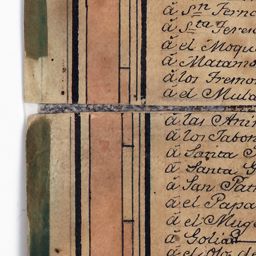 á Sn Ferna
á Sta Teres
á el Moqu
á Matamo
á los Fremo
á el Mula
á las Áni
á los Jabon
á Santa I
á Santa G
á San Patr
á el Papa
á el Mag
á Golian
á el Oto de